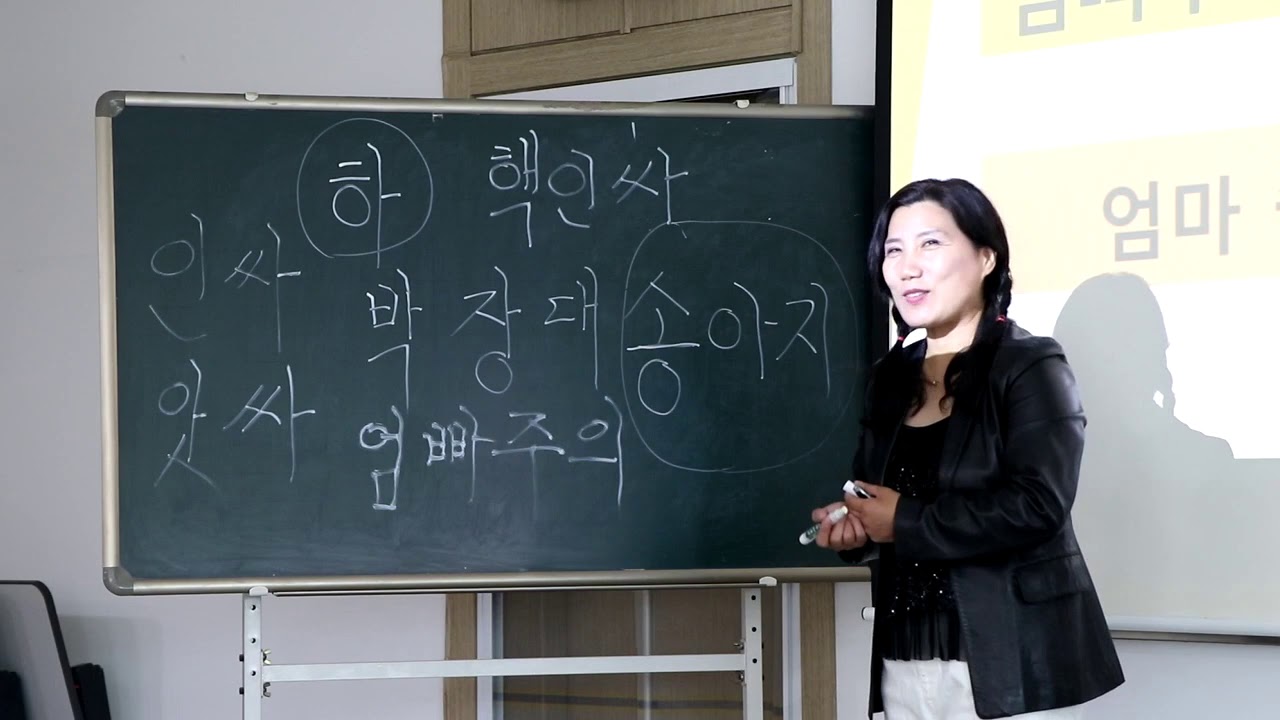 하 핵인싸
인싸 박장대 송아지
앗싸 엄빠주의
엄마